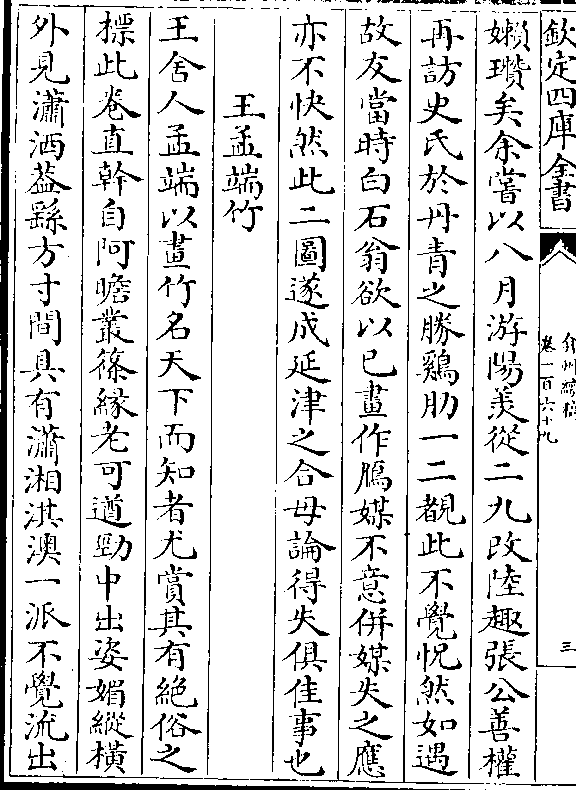 欽定四庫全書
弇州續稿
卷一百六十九
三
嬾瓚矣余嘗以八月游陽羨從二九改陸趣張公善權
再訪史氏於丹青之勝鷄肋一二覩此不覺怳然如遇
故友當時白石翁欲以已畫作鴈媒不意併媒失之應
亦不快然此二圖遂成延津之合毋論得失俱佳事也
王孟端竹
王舍人孟端以畫竹名天下而知者尤賞其有絶俗之
標此卷直幹自阿瞻叢篠緣老可遒勁中出姿媚縱橫
外見瀟洒葢繇方寸間具有瀟湘淇澳一派不覺流出